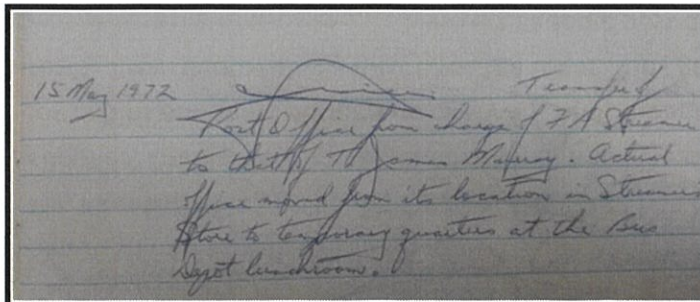 15 May 1972 Transfer of
Post Office from charge of F A Streamer
to that of T. James Murray. Actual
office moved from its location in Streamer
Store to temporary quarters at the Bus
Depot lunchroom.